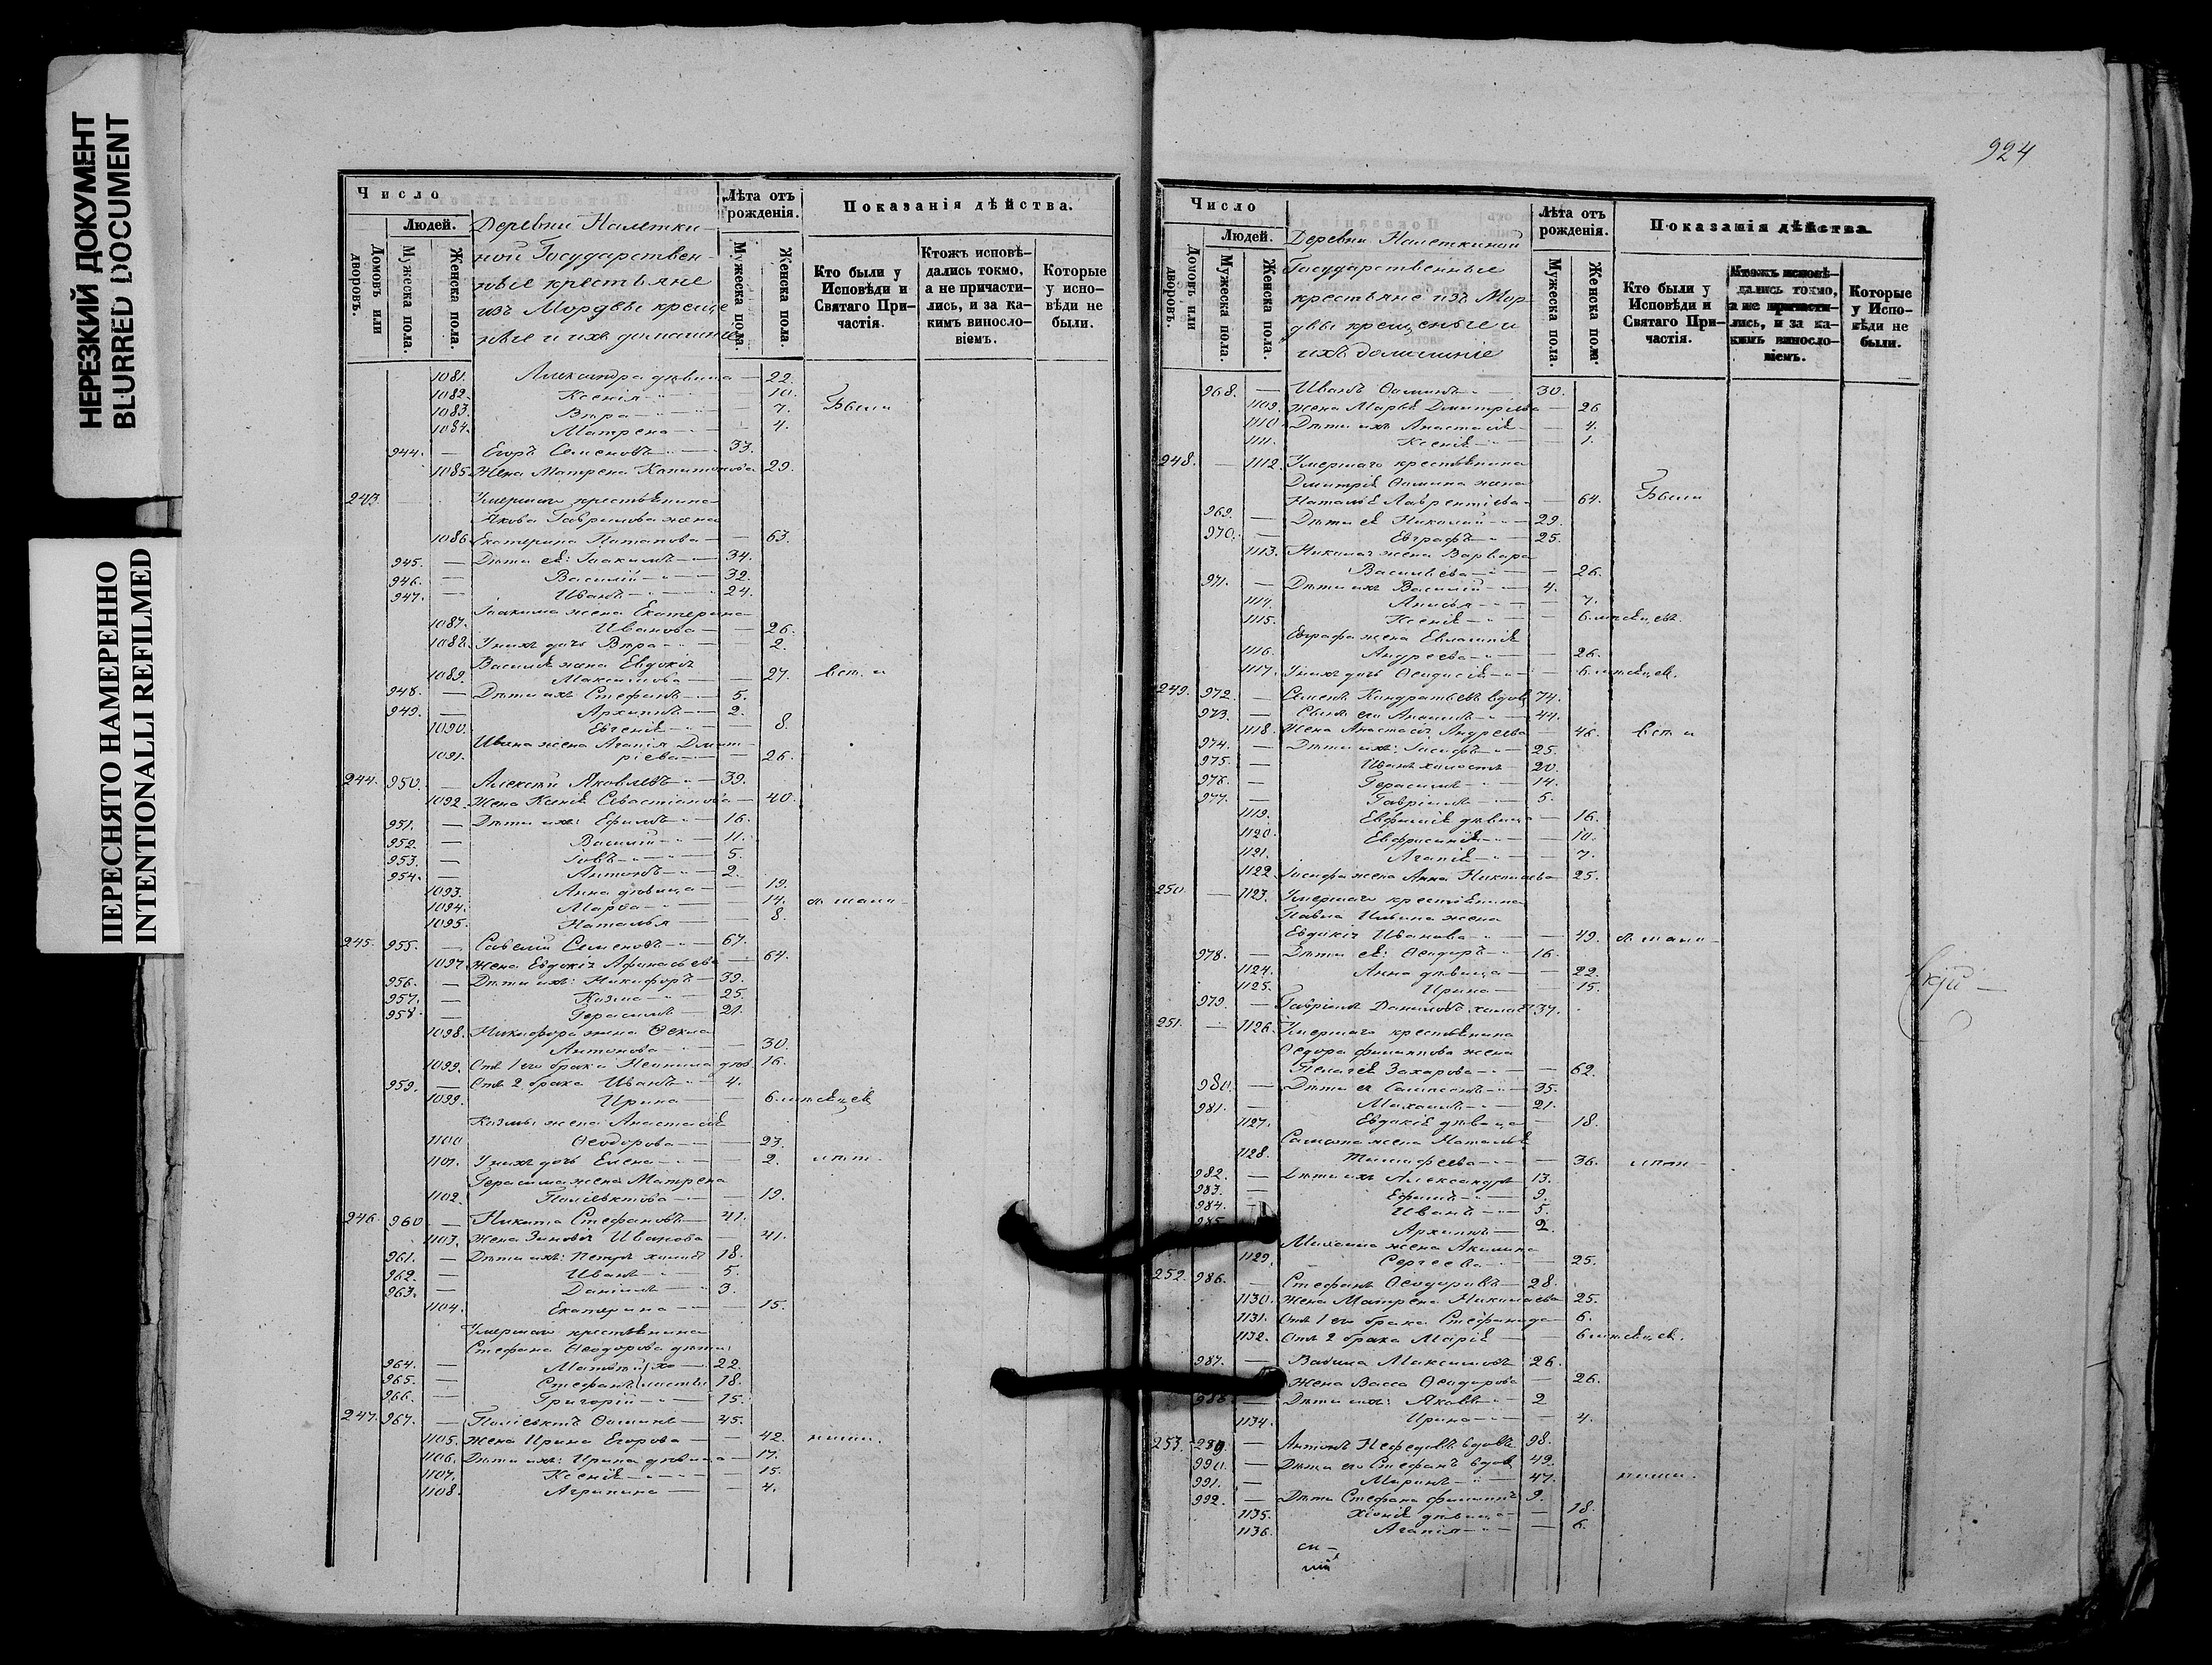 НЕРЕЗКИЙ ДОКУМЕНТ
BLURRED DOCUMENT
ПЕРЕСНЯТО НАМЕРЕННО
INTENTIONALLI REFILMED
Число
Людей.
Домовъ или дворовъ.
Мужеска пола.
Женска пола.
Деревни Налетки-
ной Государствен-
ные крестьяне
изъ Мордвы креще
ные и ихъ домашніе
Лѣта отъ рожденія.
Мужеска пола.
Женска пола.
Показанія дѣйства.
Кто были у Исповѣди и Святаго Причастія.
Ктожъ исповѣдались токмо, а не причастились, и за какимъ винословіемъ.
Которые у исповѣди не были.
1081. Александра дѣвица — 22.
1082. Ксенія — 10.
1083. Вѣра — 7. Были
1084. Матрена — 4.
944. — Егоръ Семеновъ — 33.
1085. Жена Матрена Капитонова 29.
243. Умершаго крестьянина
Якова Гаврилова жена
1086. Екатерина Потапова — 63.
945. — Дѣти ея: Іоакимъ — 34.
946. — Василій — 32.
947. — Иванъ — 24.
Іоакима жена Екатерина
1087. Иванова — 26.
1088. У нихъ дочь Вѣра — 2.
Василія жена Евдокія
1089. Максимова — 27.
948. — Дѣти ихъ Стефанъ — 5.
949. — Архипъ — 2.
1090. Евгенія — 8.
Ивана жена Агапія Дмит-
1091. ріева — 26.
244. 950. — Алексѣй Яковлевъ — 39.
1092. Жена Ксенія Севастіанова — 40.
951. — Дѣти ихъ: Ефимъ — 16.
952. — Василій — 11.
953. — Іовъ — 5.
954. — Антонъ — 2.
1093. Анна дѣвица — 19.
1094. Марѳа — 14.
1095. Наталья — 8.
245. 955. — Савелій Семеновъ — 67.
1097. Жена Евдокія Афанасьева — 64.
956. — Дѣти ихъ: Никифоръ — 39.
957. — Козма — 25.
958. — Герасимъ — 21.
1098. Никифора жена Ѳекла
Антонова — 30.
1099. Отъ 1 его брака Неонила дѣв. 16.
959. — Отъ 2 брака Иванъ — 4.
1099. Ирина — 6 мѣсяцев
Козмы жена Анастасія
1100 Ѳеодорова — 23.
1101. У нихъ дочь Елена — 2.
Герасима жена Матрена
1102. Поліевктова — 19.
246. 960. — Никита Стефановъ — 41.
1103. Жена Зиновія Иванова — 41.
961. — Дѣти ихъ: Петръ холостъ 18.
962. — Иванъ — 5.
963. — Даніилъ — 3.
1104. Екатерина — 15.
Умершаго крестьянина
Стефана Ѳеодорова дѣти:
964. — Матвѣй хо — 22.
965. — Стефанъ лосты 18.
966. — Григорій — 15.
247. 967. — Поліевктъ Ѳоминъ — 45.
1105. Жена Ирина Егорова — 42.
1106. Дѣти ихъ: Ирина дѣвица — 17.
1107. Ксенія — 15.
1108. Агрипина — 4.
924
Число
Людей.
Домовъ или дворовъ.
Мужеска пола.
Женска пола.
Деревни Налеткиной
Государственные
крестьяне изъ Мор-
двы крещеные и
ихъ домашніе
Лѣта отъ рожденія.
Мужеска пола.
Женска пола.
Показанія дѣйства.
Кто были у Исповѣди и Святаго Причастія.
Ктожъ исповѣдались токмо, а не причастились, и за какимъ винословіемъ.
Которые у Исповѣди не были.
968. — Иванъ Ѳоминъ — 30.
1109. Жена Марья Дмитріева — 26
1110 Дѣти ихъ Анастасія — 4.
1111. Ксенія — 1.
248. — 1112. Умершаго крестьянина
Дмитрія Ѳомина жена
Наталья Лаврентіева — 64. Были
969. — Дѣти ея Николай — 29.
970. — Евграфъ — 25.
1113. Николая жена Варвара
Васильева — 26.
971. — Дѣти ихъ Василій — 4.
1114. Анисья — 7.
1115. Ксенія — 6 мѣсяцевъ.
Евграфа жена Евлампія
1116. Андреева — 26.
1117. У нихъ дочь Ѳеодосія — 6 мѣсяцев.
249. 972. — Семенъ Кондратьевъ вдов 74.
973. — Сынъ его — 44.
1118. Жена Анастасія Андреева — 46.
974. — Дѣти ихъ: Іосифъ — 25.
975. — Иванъ холостъ — 20.
976. — Герасимъ — 14.
977. — Гавріилъ — 5.
1119. Евфимія дѣвица — 16.
1120. Евфросинія — 10.
1121. Агапія — 7.
1122 Іосифа жена Анна Николаева 25.
250. — 1123. Умершаго крестьянина
Павла Ильина жена
Евдокія Иванова — 49.
978. — Дѣти ея: Ѳеодоръ — 16.
1124. Анна дѣвица — 22.
1125. Ирина — 15.
979. — Гавріилъ Даниловъ холост 37.
251. — 1126. Умершаго крестьянина
Ѳедора Филиппова жена
Пелагея Захарова — 62.
980. — Дѣти ея Сампсонъ — 35.
981. — Михаилъ — 21.
1127. Евдокія дѣвица — 18.
Сампсона жена Наталья
1128. Тимофеева — 36.
982. — Дѣти ихъ Александръ 13.
983. — Ефимъ — 9.
984. — Иванъ — 5.
985. Архипъ — 2.
Михаила жена Акилина
1129. Сергеева — 25.
252. 986. — Стефанъ Ѳеодоровъ — 28.
1130. Жена Матрена Николаева 25.
1131. Отъ 1 его брака Стефанида 6.
1132. Отъ 2 брака Марія — 6 мѣсяцев.
987. — Вавила Максимовъ 26.
Жена Васса Ѳеодорова — 26.
988. — Дѣти ихъ: Яковъ — 2
1134. Ирина — 4.
253. 989. — Антонъ Нефедовъ вдовъ 98.
990. — Дѣти его Стефанъ вдов 49.
991. — Миронъ — 47.
992. — Дѣти Стефана Филиппъ 9.
1135. Хіонія дѣвица — 18.
1136. Агапія — 6.